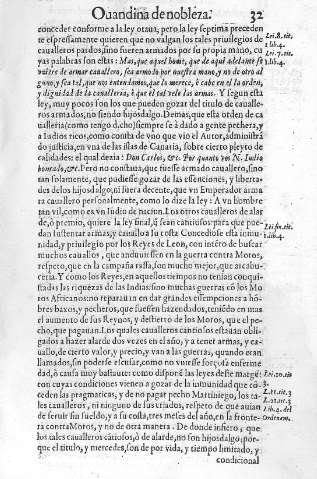 Quandina de nobleza. 32
conceder conforme a la ley octaua, pero la ley septima preceden
te espresamente quieren que no valgan los tales priuilegios de
caualleros pardos, sino fueren armados por su propia mano, cu
yas palabras son estas: Mas, que aquel home, que de aqui adelante se
ouiere de armar cauallero, sea armado por nuestra mano, y no de otro al
guno, y sea tal, que nos entendamos, que lo merece, è cabe en el la orden,
y dignidad de la caualleria, è que el rei vele las armas. Y segun esta
ley, muy pocos son los que pueden gozar del titulo de caualle-
ros armados, no siendo hijosdalgo. Demas, que esta orden de ca
ualleria (como tengo dicho) siempre se à dado a gente pechera, y
a Indios ricos, como consta de vno que vio el Autor, administrã
do justicia, en vna de las islas de Canaria, sobre cierto pleyto de
calidades: el qual dezia: Don Carlos, &c. Por quanto vos N. Indio
&c. Pero no constaua, que fuesse armado cauallero, sino
tan solamente, que pudiesse gozar de las essenciones, y liberta-
des de los hijosdalgo, ni fuera decente, que vn Emperador arma
ra cauallero personalmente, como lo dize la ley: A vn hombre
tan vil, como es vn Indio de nacion. Los otros caualleros de alar
de, ò premio, quiere la ley final, q̃ sean
tan sustentar armas, y cauallo, a su costa. Concediose esta inmu-
nidad, y priuilegio por los Reyes de Leon, con intento de buscar
muchos cauallos, que anduuiessen en la guerra contra Moros,
respeto, que en la campaña rassa, son mucho mejor, que arcabu-
zeria. Y como los Reyes, en aquellos tiempos no tenian conquis-
tadas las riquezas de las Indias: sino muchas guerras cõ los Mo
ros Africanos: no reparauan en dar grandes essempciones a hõ-
bres baxos, y pecheros, que fuessen hazendados, teniendo en mas
el aumento de sus Reynos, y destierro de los Moros, que el pe-
cho, que pagauan. Los quales caualleros estauan obli-
gados a hazer alarde dos vezes en el año, y a tener armas, y ca-
uallo, de cierto valor, y precio, y van a las guerras, quando eran
llamados, sin poderse escusar, como no fuesse por enferme-
dad, ò causa muy bastante: como dispone las leyes deste margẽ:
con cuyas condiciones vienen a gozar de la inmunidad que cõ-
ceden las pragmaticas, y de no pagar pecho Martiniego, los ta-
les caualleros, ni ninguno de sus criados, respeto de que auian
de seruir sin sueldo, y a su costa, tres meses del año, en la fronte-
ra contra Moros, y no de otra manera. De donde infiero, que
los tales caualleros, ò de alarde, no son hijosdalgo: por-
que el titulo, y mercedes, son de por vida, y tiempo limitado, y
condicional
Lei. 8. tit.
1. lib. 4.
Lei. 7. tit.
1. lib. 4.
Lei fin. tit.
1. lib. 4.
Lei. 20. tit